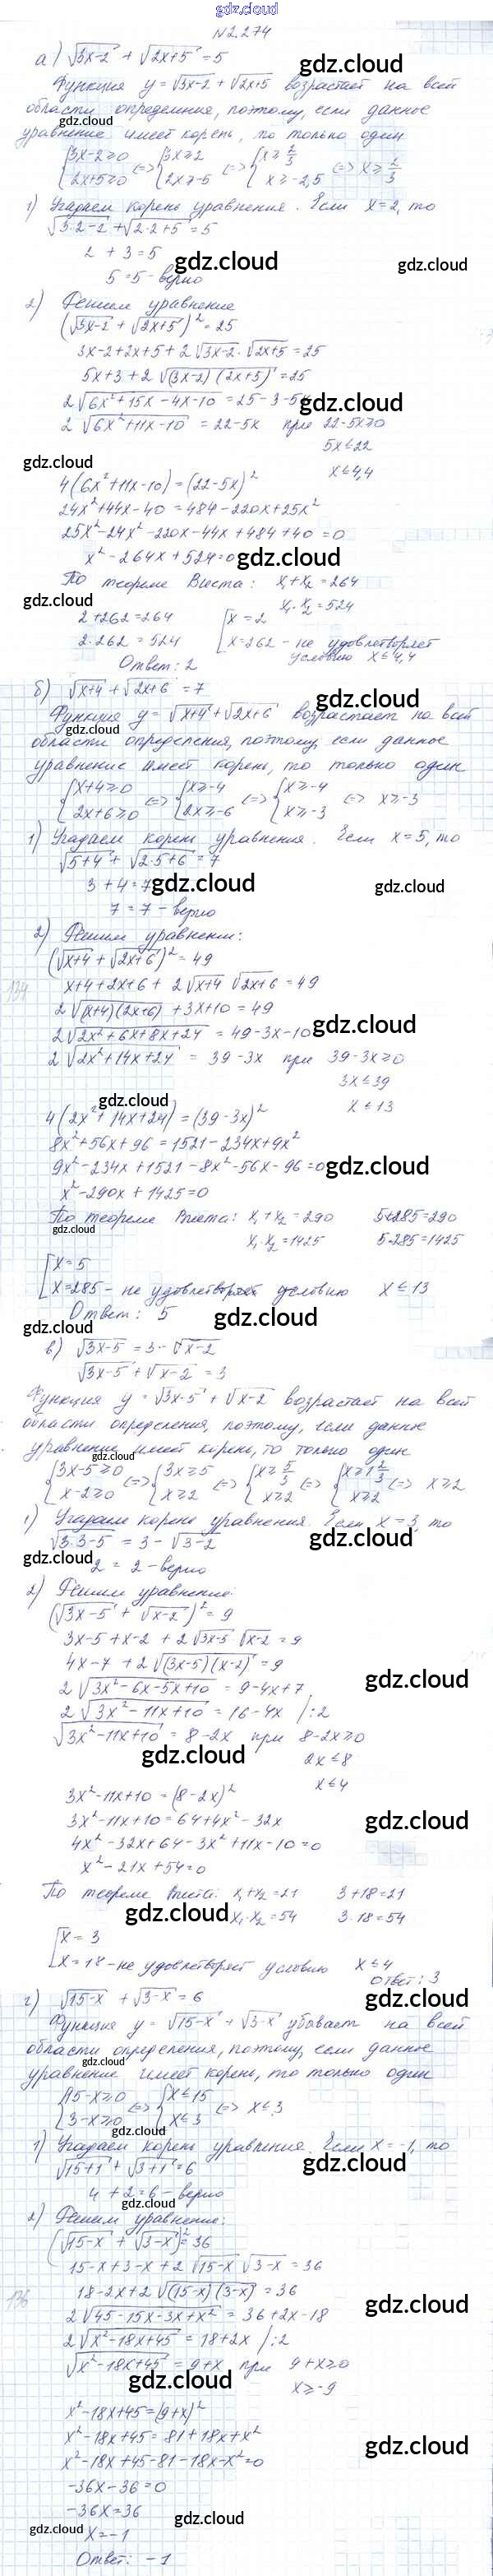 gdz.cloud
№2.274
а) √3x-2 + √2x+5 = 5
Функция y = √3x-2 + √2x+5 возрастает на всей
области определения, поэтому, если данное
уравнение имеет корень, то только один
{3x-2≥0 {2x+5≥0 <=> {3x≥2 {2x≥-5 <=> {x≥2/3 {x≥-2,5 <=> x≥2/3
1) Угадаем корень уравнения. Если x=2, то
√3·2-2 + √2·2+5 = 5
2 + 3 = 5
5 = 5 - верно
2) Решим уравнение
(√3x-2 + √2x+5)² = 25
3x-2+2x+5+2√3x-2·√2x+5 = 25
5x+3+2√(3x-2)(2x+5) = 25
2√6x²+15x-4x-10 = 25-3-5x
2√6x²+11x-10 = 22-5x при 22-5x≥0
5x≤22
x≤4,4
4(6x²+11x-10) = (22-5x)²
24x²+44x-40 = 484-220x+25x²
25x²-24x²-220x-44x+484+40=0
x²-264x+524=0
По теореме Виета: x₁+x₂=264
x₁·x₂=524
2+262=264
2·262=524
[x=2
[x=262 - не удовлетворяет
условию x≤4,4
Ответ: 2
б) √x+4 + √2x+6 = 7
Функция y = √x+4 + √2x+6 возрастает на всей
области определения, поэтому, если данное
уравнение имеет корень, то только один
{x+4≥0 {2x+6≥0 <=> {x≥-4 {2x≥-6 <=> {x≥-4 {x≥-3 <=> x≥-3
1) Угадаем корень уравнения. Если x=5, то
√5+4 + √2·5+6 = 7
3+4=7
7 = 7 - верно
2) Решим уравнение:
(√x+4 + √2x+6)² = 49
x+4+2x+6 + 2√x+4 √2x+6 = 49
2√(x+4)(2x+6) + 3x+10 = 49
2√2x²+6x+8x+24 = 49-3x-10
2√2x²+14x+24 = 39-3x при 39-3x≥0
3x≤39
x≤13
4(2x²+14x+24) = (39-3x)²
8x²+56x+96 = 1521-234x+9x²
9x²-234x+1521-8x²-56x-96=0
x²-290x+1425=0
По теореме Виета: x₁+x₂=290 5+285=290
x₁·x₂=1425 5·285=1425
[x=5
[x=285 - не удовлетворяет условию x≤13
Ответ: 5
в) √3x-5 = 3-√x-2
√3x-5 + √x-2 = 3
Функция y = √3x-5 + √x-2 возрастает на всей
области определения, поэтому, если данное
уравнение имеет корень, то только один
{3x-5≥0 {x-2≥0 <=> {3x≥5 {x≥2 <=> {x≥5/3 {x≥2 <=> {x≥1 2/3 {x≥2 <=> x≥2
1) Угадаем корень уравнения. Если x=3, то
√3·3-5 = 3-√3-2
2 = 2 - верно
2) Решим уравнение:
(√3x-5 + √x-2)² = 9
3x-5+x-2 + 2√3x-5 √x-2 = 9
4x-7 + 2√(3x-5)(x-2) = 9
2√3x²-6x-5x+10 = 9-4x+7
2√3x²-11x+10 = 16-4x /:2
√3x²-11x+10 = 8-2x при 8-2x≥0
2x≤8
x≤4
3x²-11x+10 = (8-2x)²
3x²-11x+10 = 64+4x²-32x
4x²-32x+64-3x²+11x-10=0
x²-21x+54=0
По теореме Виета: x₁+x₂=21 3+18=21
x₁·x₂=54 3·18=54
[x=3
[x=18 - не удовлетворяет условию x≤4
Ответ: 3
г) √15-x + √3-x = 6
Функция y = √15-x + √3-x убывает на всей
области определения, поэтому, если данное
уравнение имеет корень, то только один
{15-x≥0 {3-x≥0 <=> {x≤15 {x≤3 <=> x≤3
1) Угадаем корень уравнения. Если x=-1, то
√15+1 + √3+1 = 6
4+2=6 - верно
2) Решим уравнение:
(√15-x + √3-x)² = 36
15-x+3-x+2√15-x √3-x = 36
18-2x+2√(15-x)(3-x) = 36
2√45-15x-3x+x² = 36+2x-18
2√x²-18x+45 = 18+2x /:2
√x²-18x+45 = 9+x при 9+x≥0
x≥-9
x²-18x+45 = (9+x)²
x²-18x+45 = 81+18x+x²
x²-18x+45-81-18x-x²=0
-36x-36=0
-36x=36
x=-1
Ответ: -1